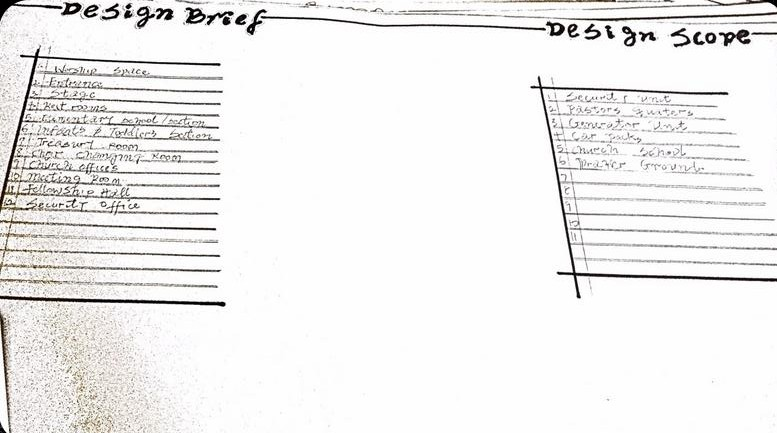 Design Brief
1 Worship Space
2 Entrance
3 Stage
4 Rest rooms
5 Elementary school/section
6 Infants & Toddlers Section
7 Treasury Room
8 Choir Changing Room
9 Church offices
10 Meeting Room
11 Fellowship Hall
12 Security office
Design Scope
1 Security unit
2 Pastors Quaters
3 Generator Unit
4 Car
5 Church School
6 Prayer Ground
7
8
9
10
11